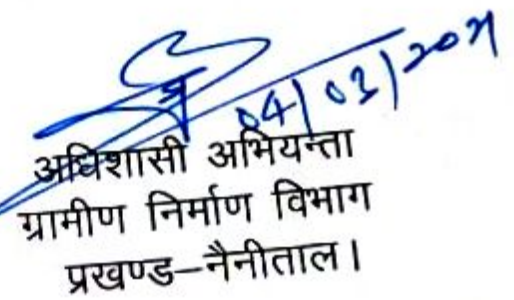 04/03/2021
अधिशासी अभियन्ता
ग्रामीण निर्माण विभाग
प्रखण्ड–नैनीताल।